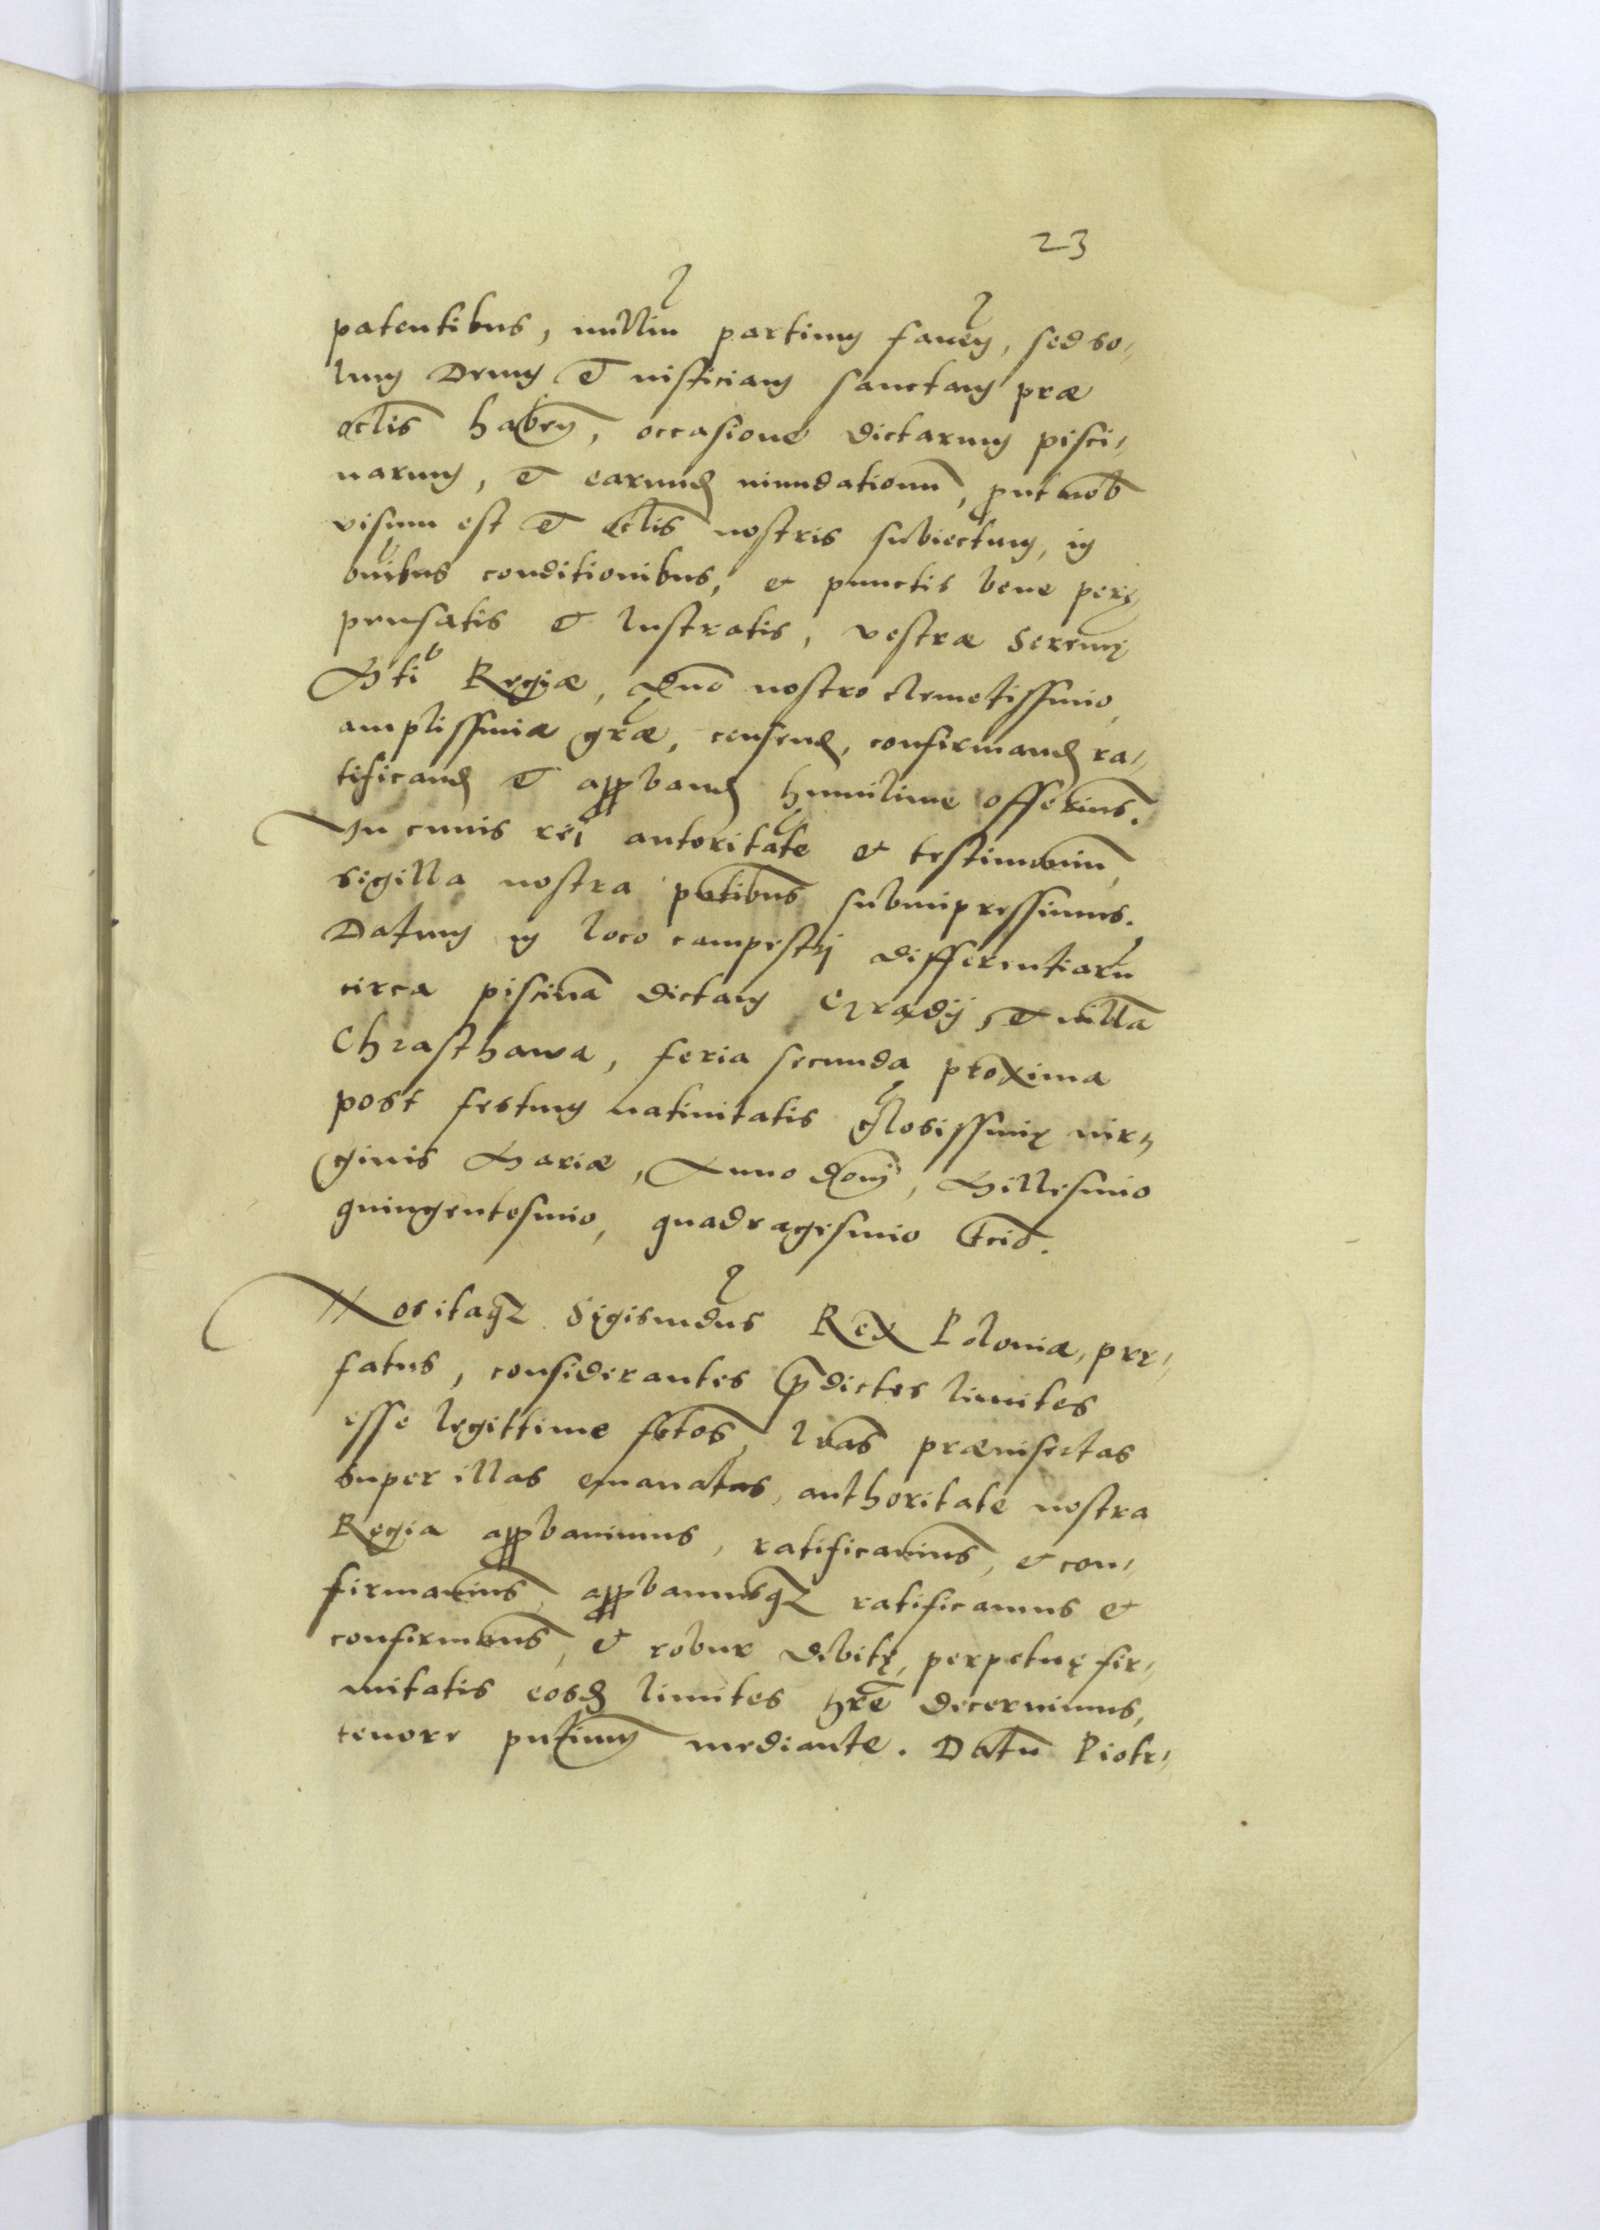 23
patentibus, nulliu partium faven, sed so-
lum Deum et iusticiam sanctam præ
oclis haben, occasione dictarum pisci-
narum, et earund inundationu, put nob
visum est et oclis nostris subiectum, in
oibus conditionibus, et punctis bene per-
pensatis et lustratis, vestræ Serenę
Mti Regiæ, dno nostro clemetissimo,
amplissimæ græ, censend, confirmand ra-
tificand et approband humilime offerims.
In cuius rei autoritate et testimoniu,
sigilla nostra pntibus subimpressimus.
Datum in loco campestrj differentiaru
circa piscina dictam et villa
Chrasthawa, feria secunda proxima
post festum nativitatis glosissimę vir-
ginis Mariæ, Anno domj, Millesimo
quingentesimo, quadragesimo tcio.
Nos itaq Sigismudus Rex Poloniæ, prę-
fatus, considerantes pdictos limites
esse legittime fctos, lras præinsertas
super illas emanatas, authoritate nostra
Regia approbavimus, ratificavims, et con-
firmavims, approbamusq ratificamus et
confirmams, et robur debitę, perpetuę fir-
mitatis eosd limites hre decernimus,
tenore pntium mediante. Datu Piotr-